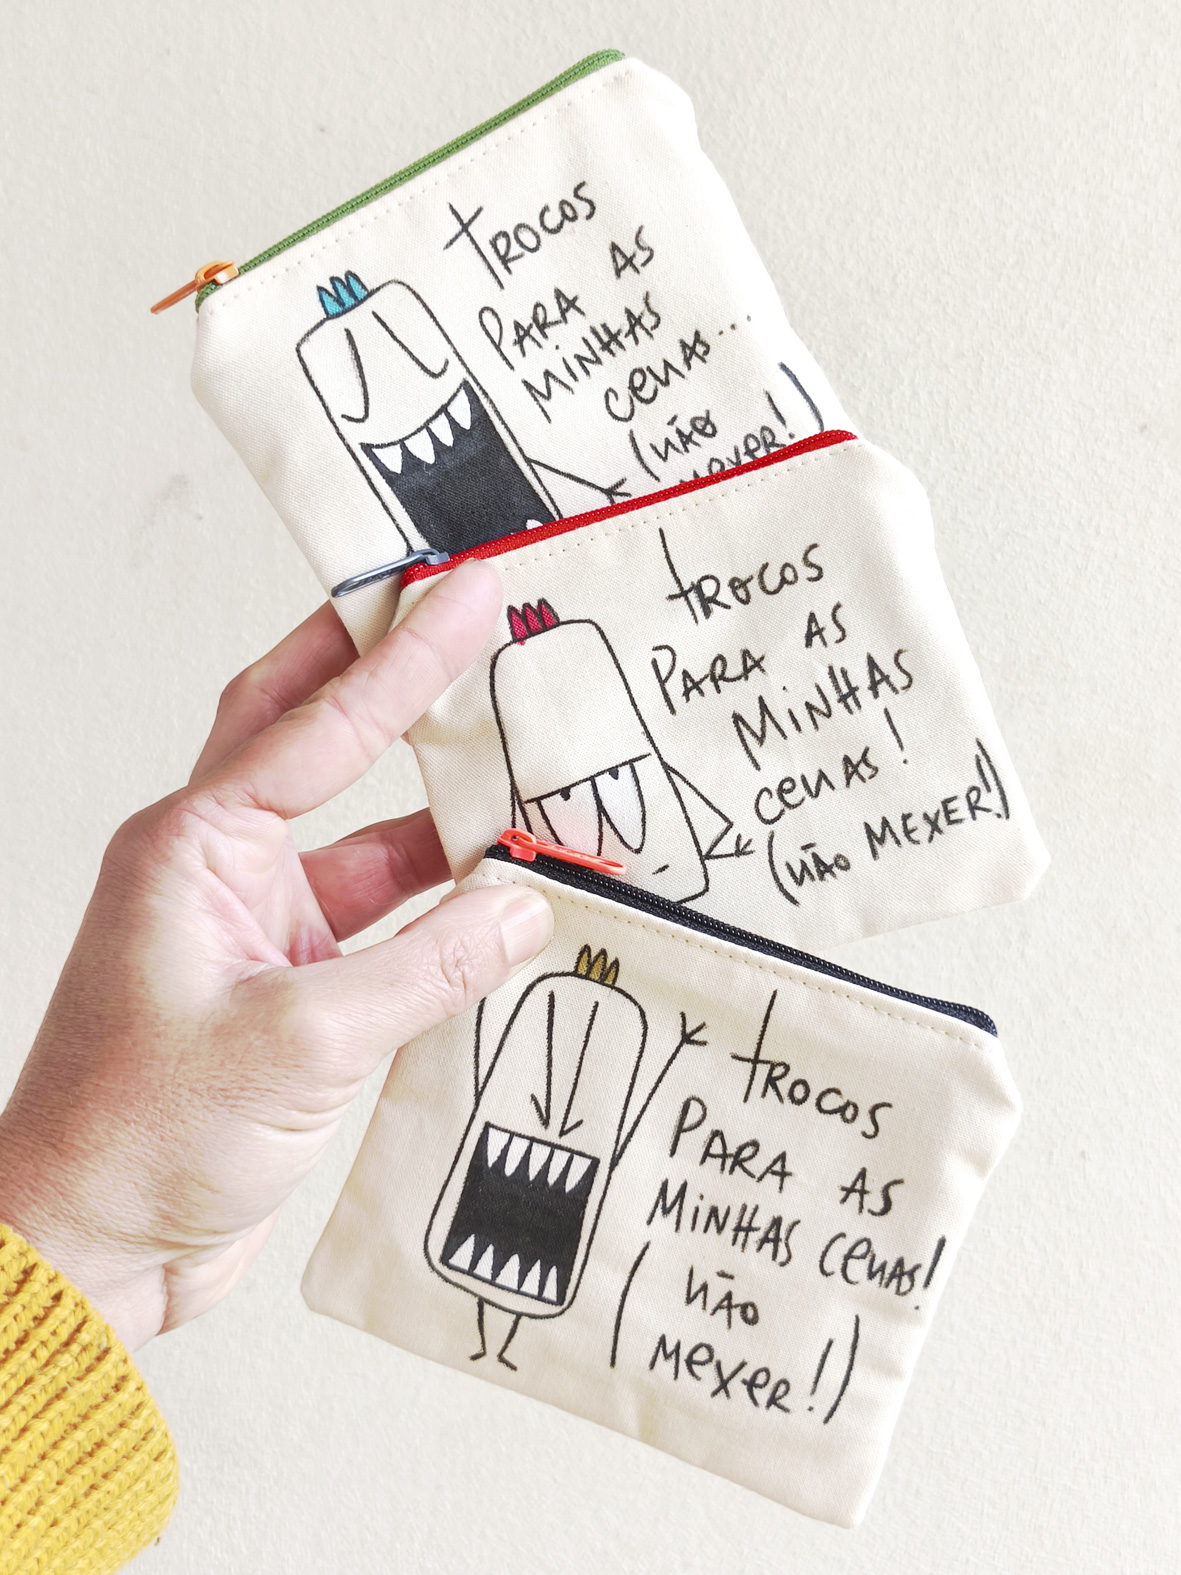 trocos
Para as
minhas
cenas...
(não
mexer!)
trocos
Para as
Minhas
cenas!
(não Mexer!)
trocos
Para as
Minhas cenas!
(não
Mexer!)